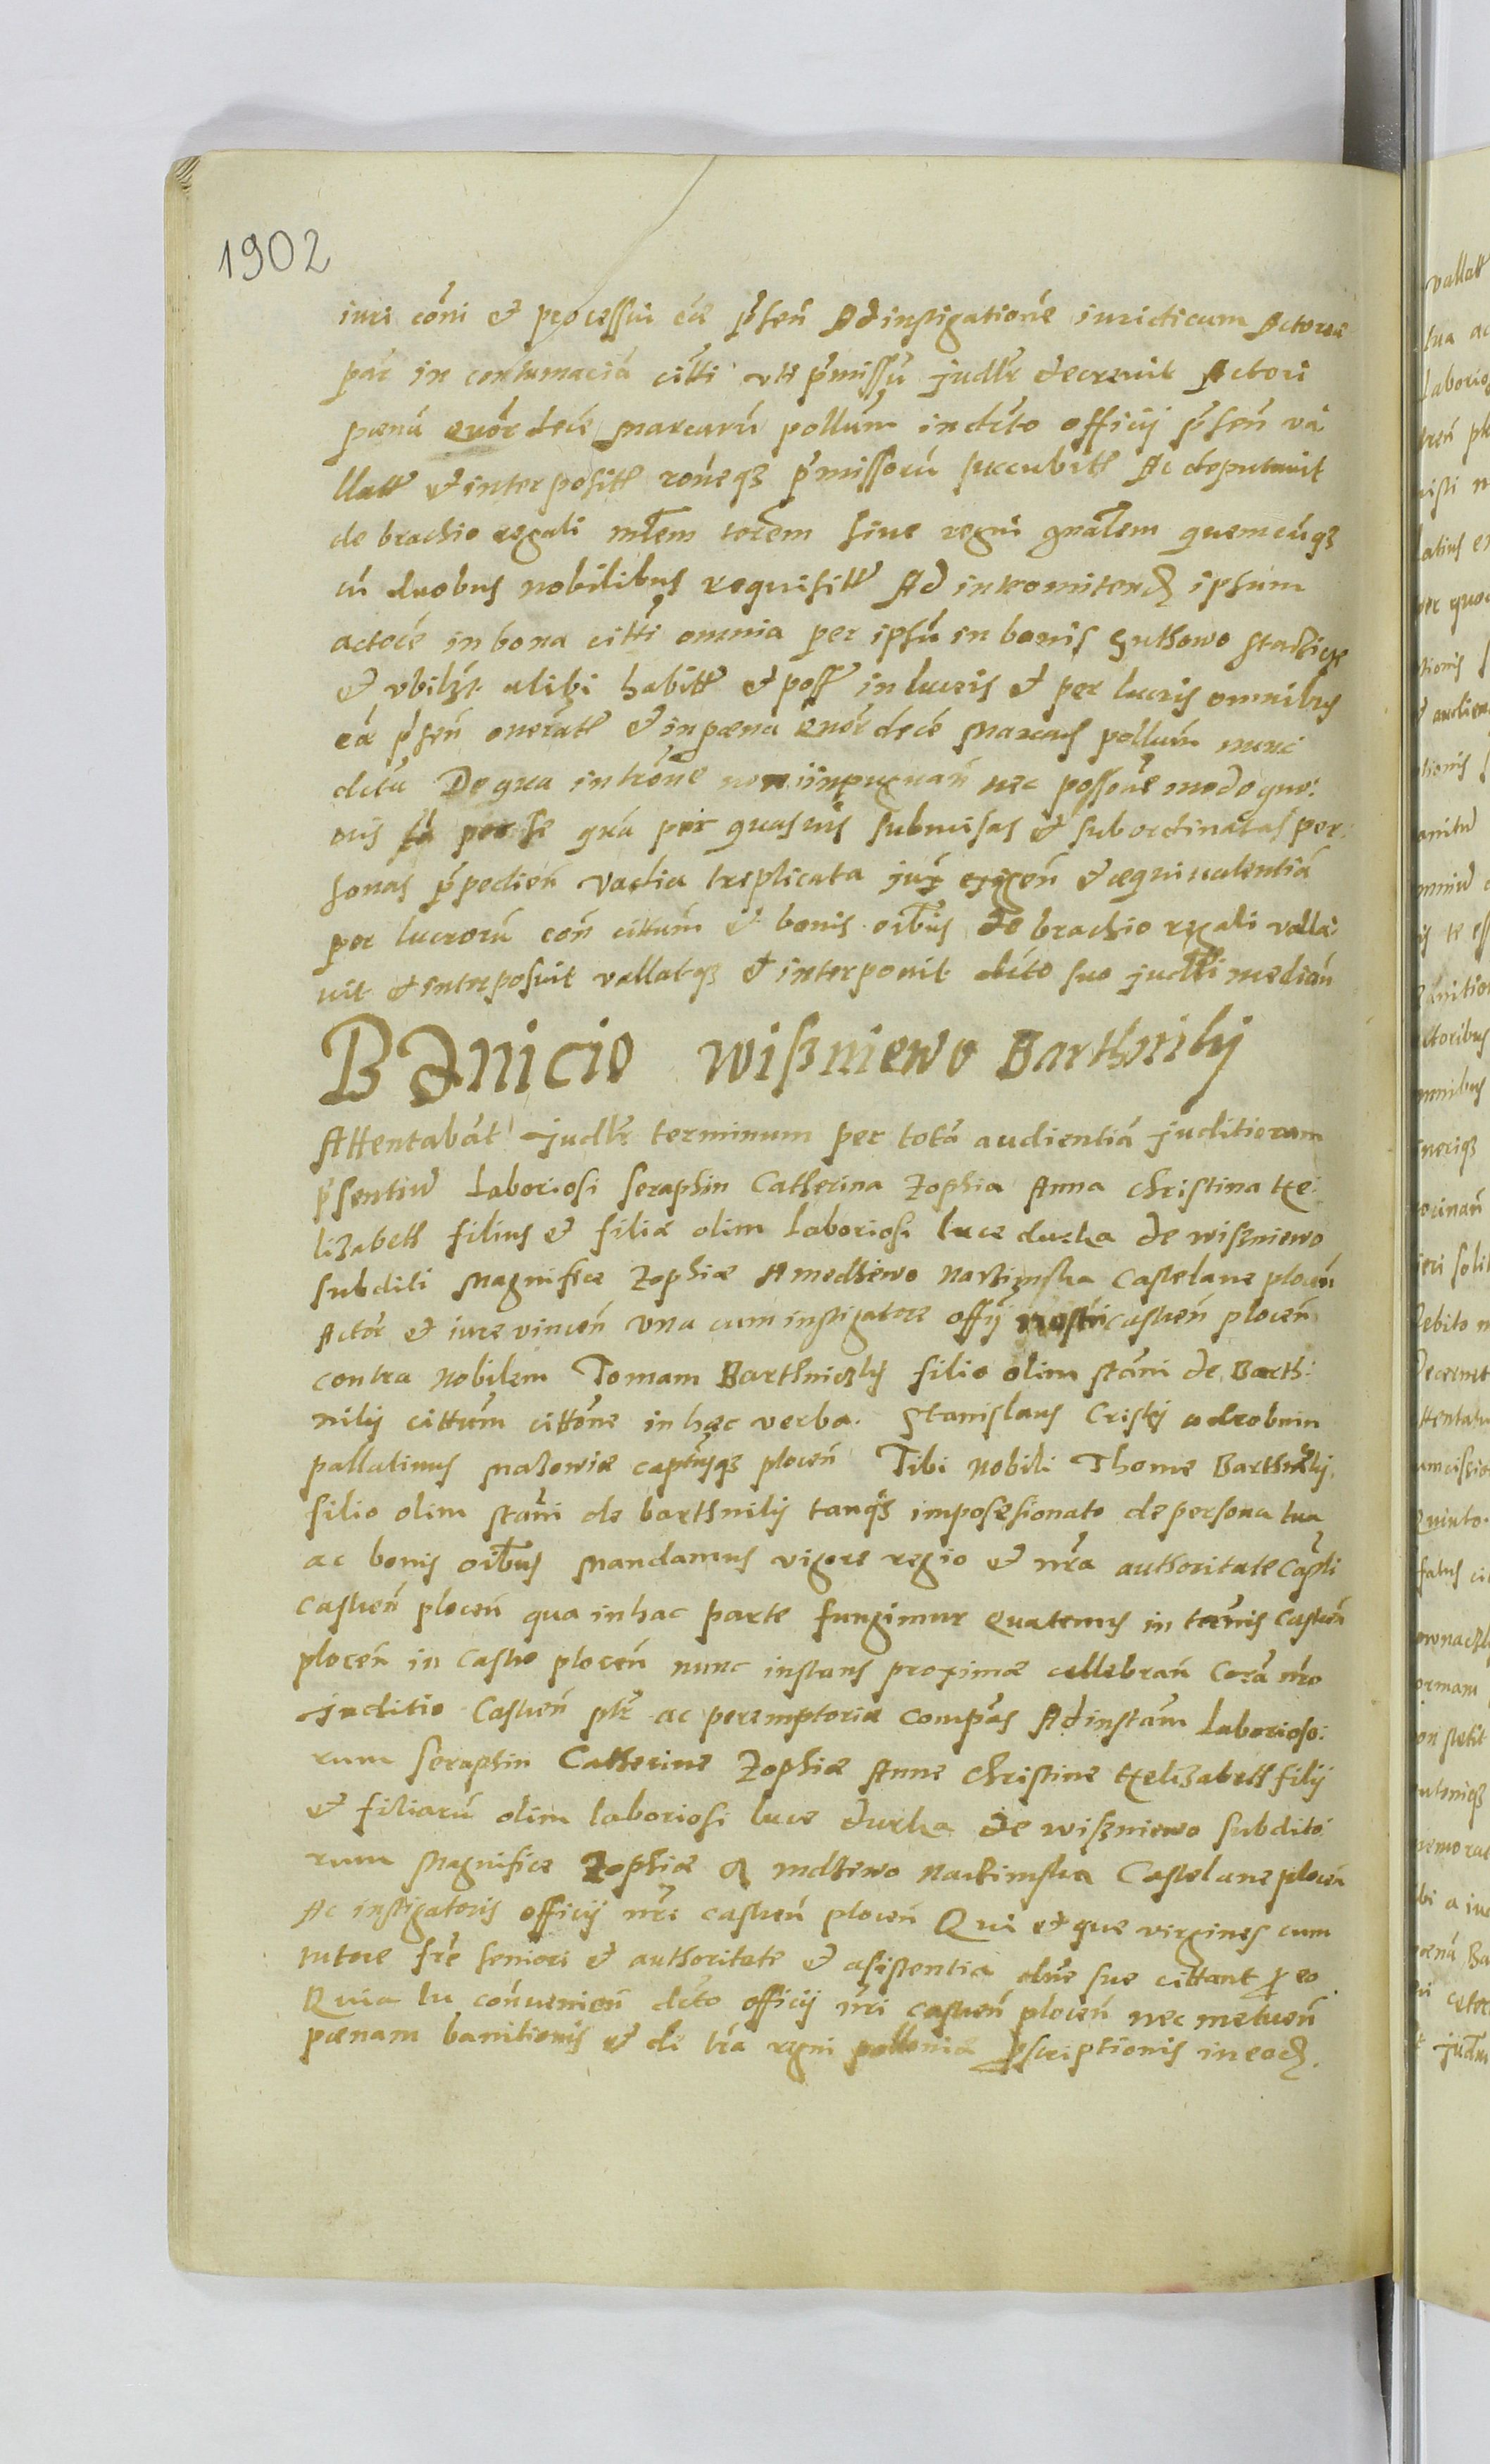 1902
iuri cōni et processui eē p̄sen̄ Ad instigatione iuridicum Actorea
par̄ in contumaciā citti uti p̄missū judłr decrevit Actori
pœnā quōrdecē Marcarū pollūm in dēto officij p̄sen̄ va
llatt et interpositt rōneqꝫ p̄missorū succubitt Ac deputavit
de brachio regali mlēm terrēm sive regni gnālem quemcūqꝫ
cū duobus nobilibus requisitt Ad intromitendꝫ ipsum
actorē in bona citti omnia per ipsū in bonis
et ubilꝫt alibi habitt et poss in lucris et per lucris omnibus
eā p̄sen̄ onerātt et in pœna quōrdecē Marcas pollūm nunc
dētu De qua intrōne non impugnan̄ nec possōne modo quo:
vis per se quā per quasvis submisas et subordinatas per:
sonas p̄pedien̄ vadia treplicata jux̄ exigen̄ et æquivalentiā
per lucrorū con̄ cittūm et bonis oībus de brachio regali valla:
vit et interposuit vallatqꝫ et interponit dēto suo judłli median̄
Banicio Wiszniewo Barthnikij
Attentabāt judłr terminum per totā audientiā juditioram
p̄sentiū Laboriosi Seraphin Catherina Zophia Anna Christina Hei
lizabeth filius et filiæ olim laboriosi luce durka de wiszniewo
subditi Magnifice Zophiæ A mdzewo Narzimska Castelane plocen̄
Actor̄ et iure vincen̄ una cum instigatore offij nostri castren̄ plocen̄
contra Nobilem Tomam Barthniczky filio olim stāni de Barth:
nikij cittūm cittōne in hæc verba. Stanislaus Criski a drobnin
pallatinus Mazowiæ captūsqꝫ plocen̄ Tibi Nobili Thome Barthnicky
filio olim stāni de barthnikij tanqꝫ imposesionato de persona tua
ac bonis oībus Mandamus vigore regio et nr̄a authoritate Capłi
Castren̄ plocen̄ qua in hac parte fungimur Quatenus in terīs Castren̄
plocen̄ in Castro plocen̄ nunc instans proximæ cellebran̄ Corā nr̄o
juditio Castren̄ plr̄ ac peremptoriæ compās Ad instām Laborioso:
rum seraphin Catherine Zophiæ Anne Christine Helizabeth filij
et filiarū olim laboriosi luce durka de wiszniewo subdito:
rum Magnifice Zophiæ A mdzewo Narzimska Castelane plocen̄
Ac instigatoris officij nr̄i castren̄ plocen̄ Qui et que virgines cum
tutore fr̄e seniori et authoritate et asistentia dn̄e sue cittant p̄ eo
Quia tu convenien̄ dēto officij nr̄i castren̄ plocen̄ nec metuen̄
pœnam banitionis et de tr̄a regni polloniæ p̄scriptionis in eodꝫ.